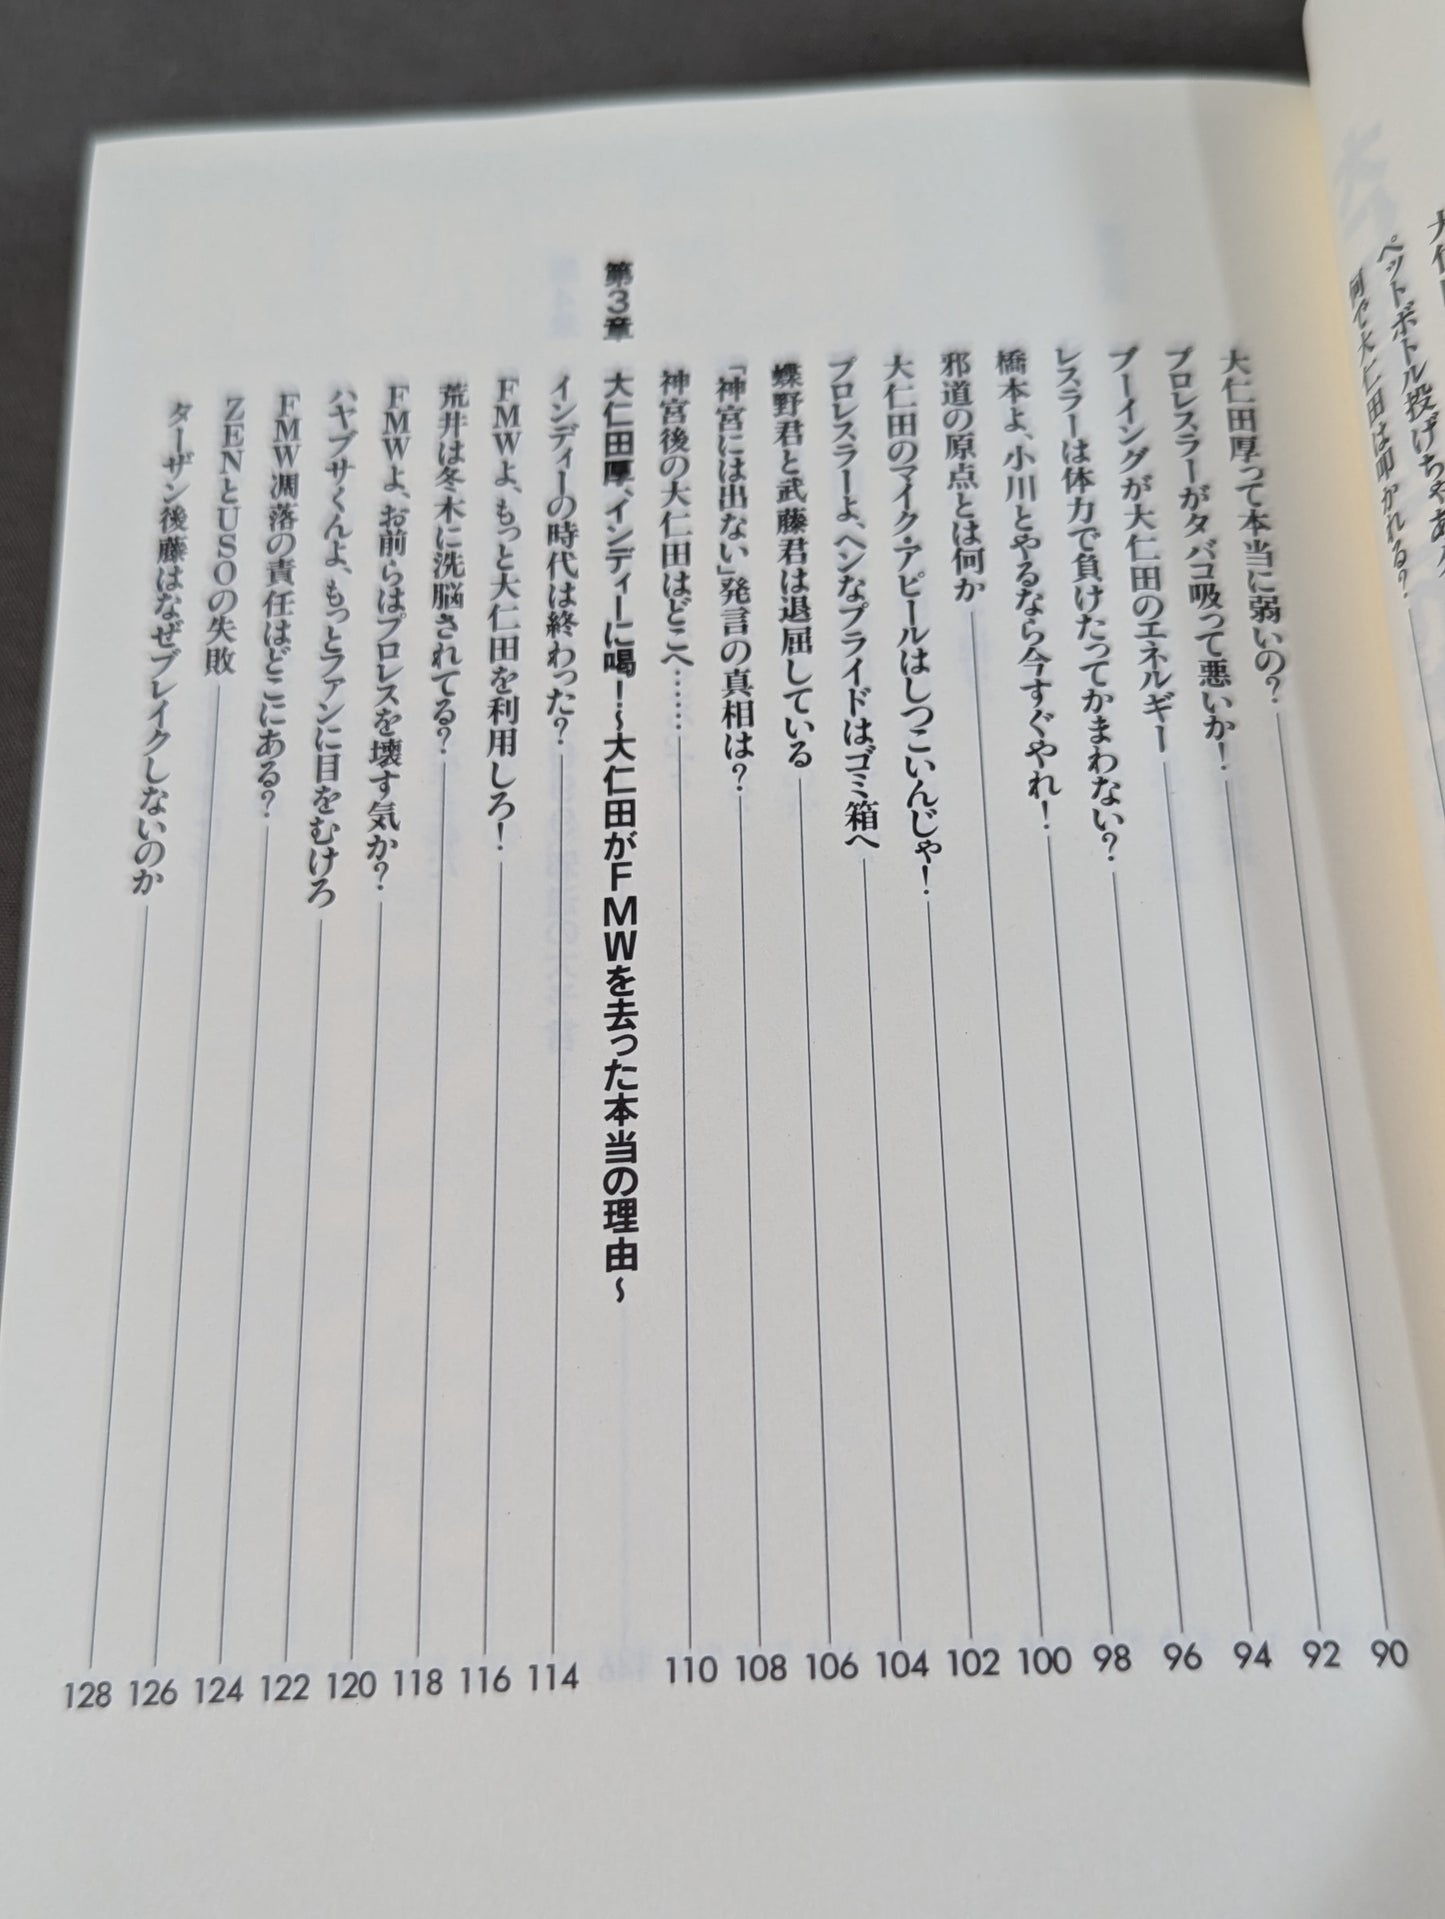 ペットボトル投げちゃあ
何で大仁田は叩かれる?
大仁田厚って本当に弱いの? 90
プロレスラーがタバコ吸って悪いか! 92
ブーイングが大仁田のエネルギー 94
レスラーは体力で負けたってかまわない? 96
橋本よ、小川とやるなら今すぐやれ! 98
邪道の原点とは何か 100
大仁田のマイク・アピールはしつこいんじゃ! 102
プロレスラーよ、ヘンなプライドはゴミ箱へ 104
蝶野君と武藤君は退屈している 106
「神宮には出ない」発言の真相は? 108
神宮後の大仁田はどこへ…… 110
第3章 大仁田厚、インディーに喝!~大仁田がFMWを去った本当の理由~
インディーの時代は終わった? 114
FMWよ、もっと大仁田を利用しろ! 116
荒井は冬木に洗脳されてる? 118
FMWよ、お前らはプロレスを壊す気か? 120
ハヤブサくんよ、もっとファンに目をむけろ 122
FMW凋落の責任はどこにある? 124
ZENとUSOの失敗 126
ターザン後藤はなぜブレイクしないのか 128